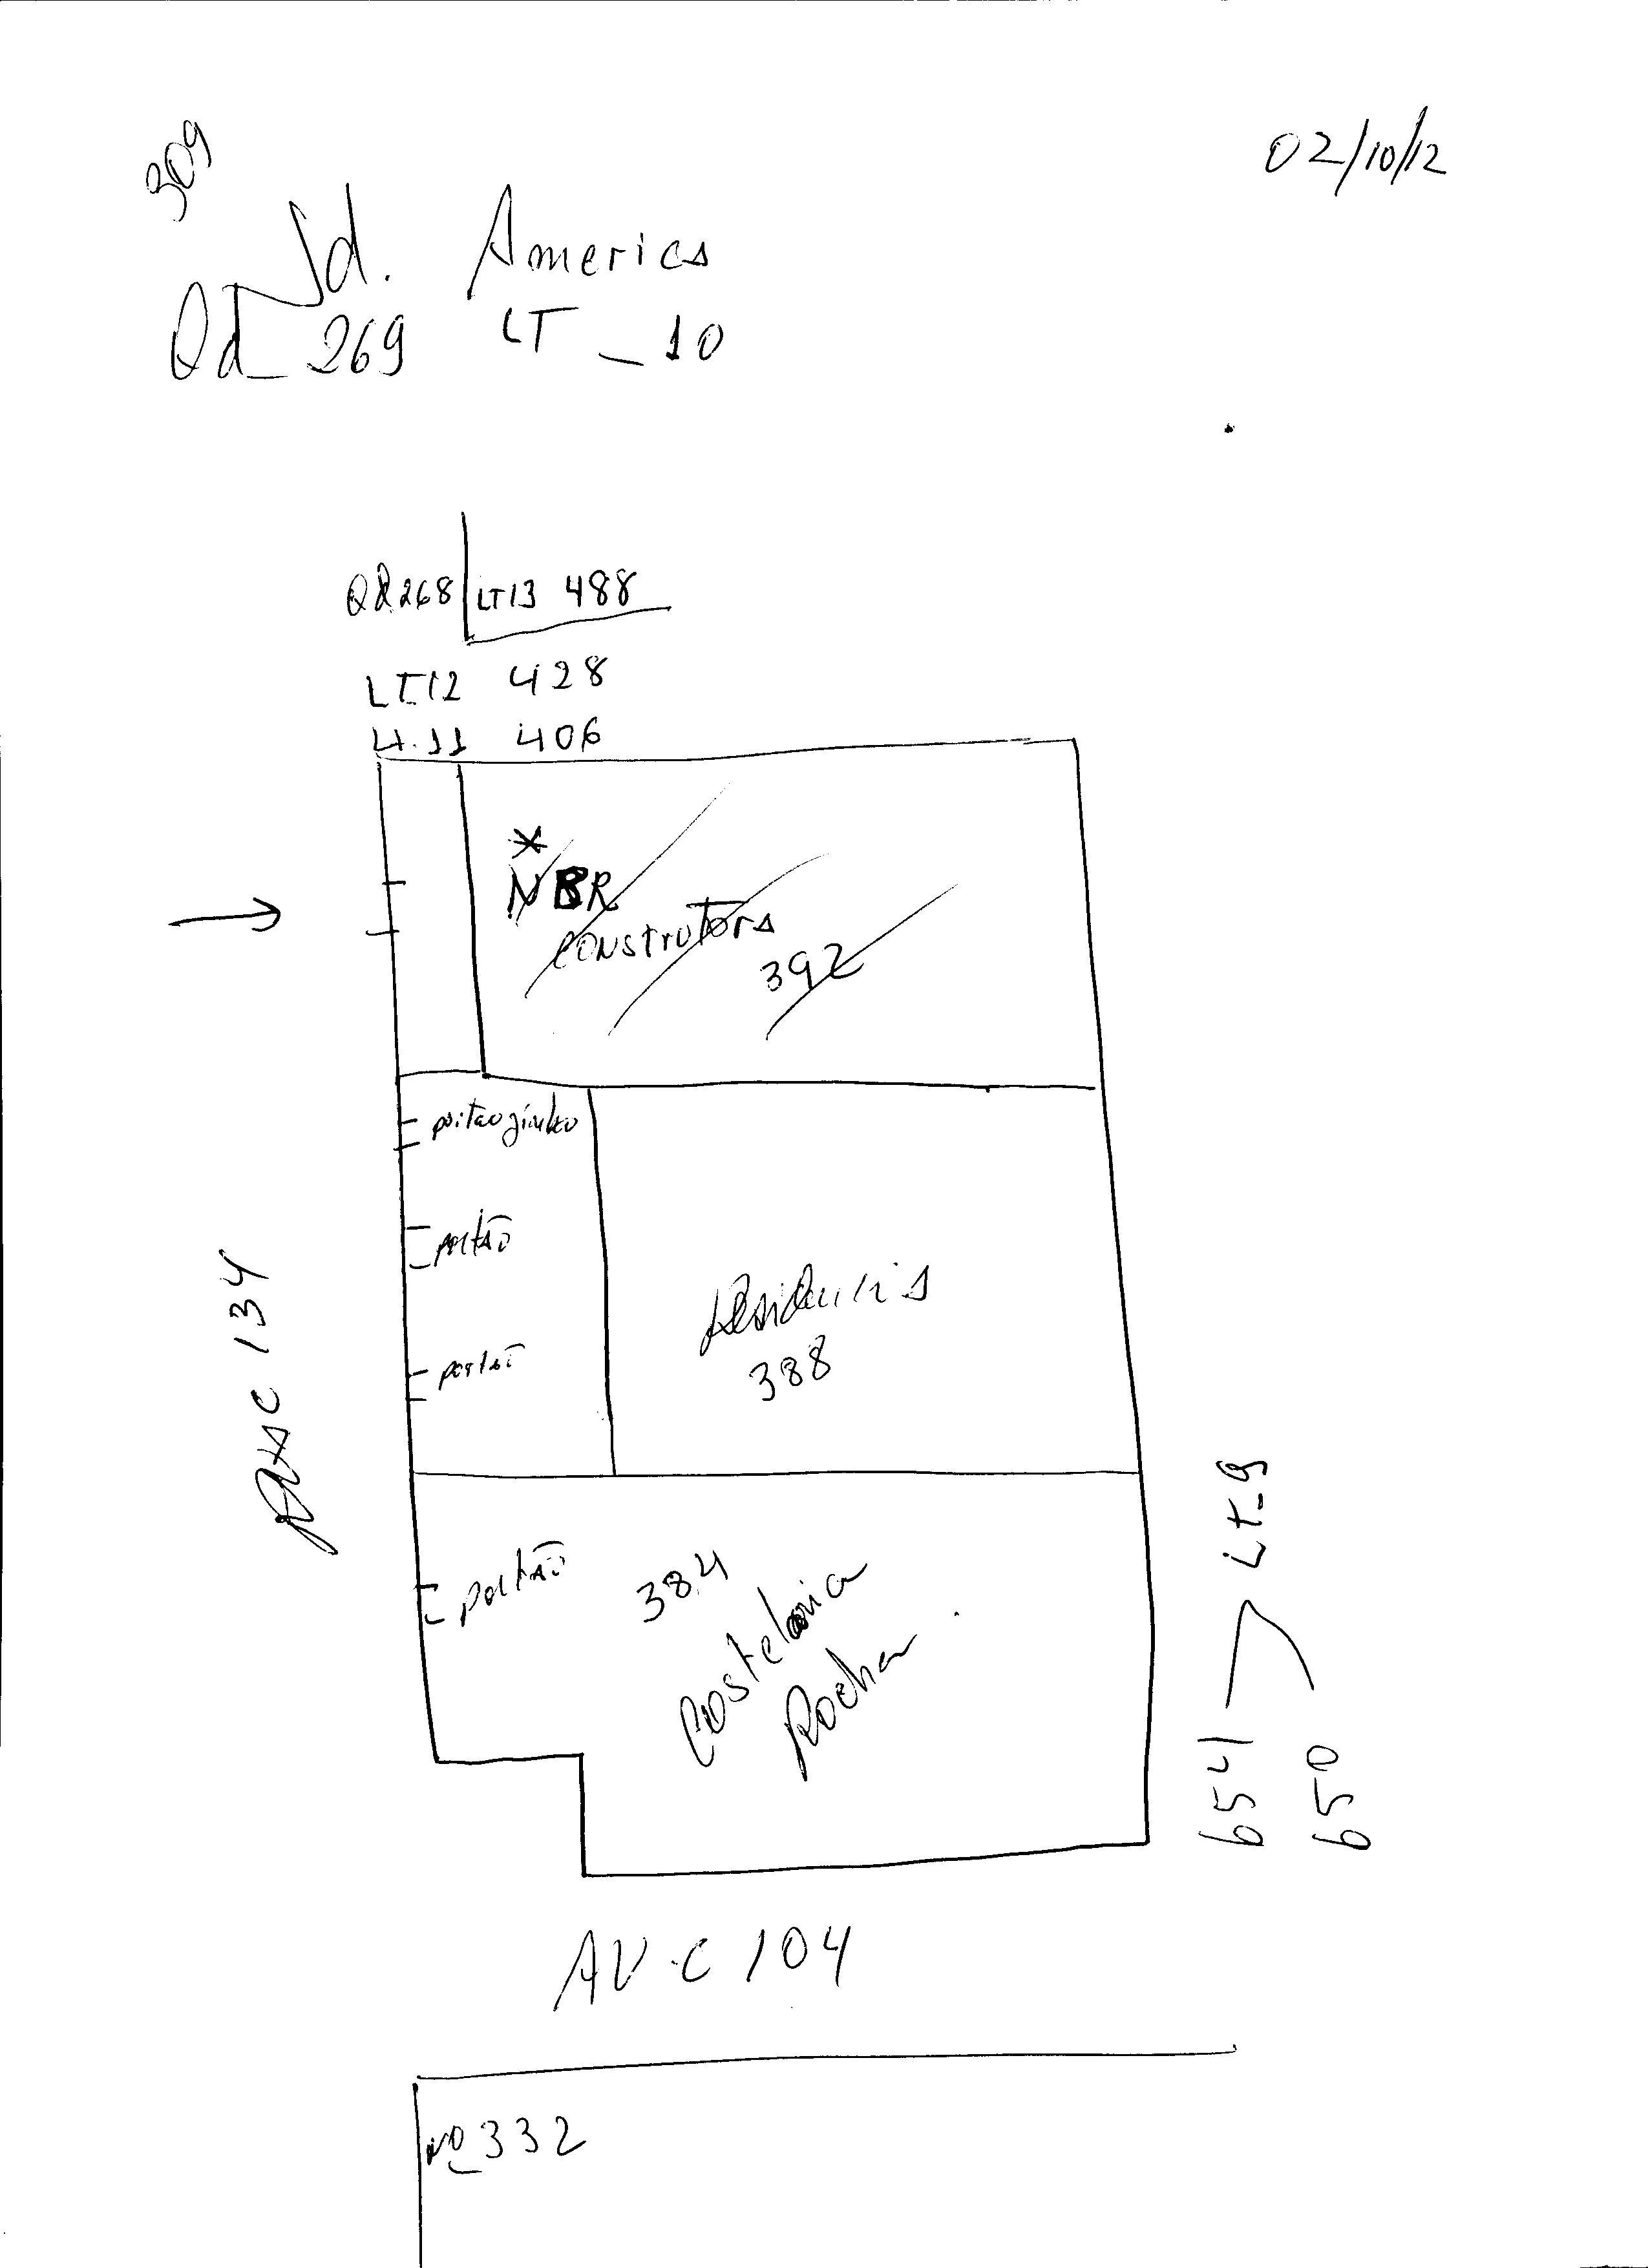 309
02/10/12
Jd. America
Qd_269 LT_10
Qd 268 LT13 488
LT.12 428
Lt.11 406
*
NBR
construtora
392
portão
portão
Residencia
388
Rua C 134
portão
384
Costelaria
Rocha
Lt_9
654
650
AV. C 104
Nº 332